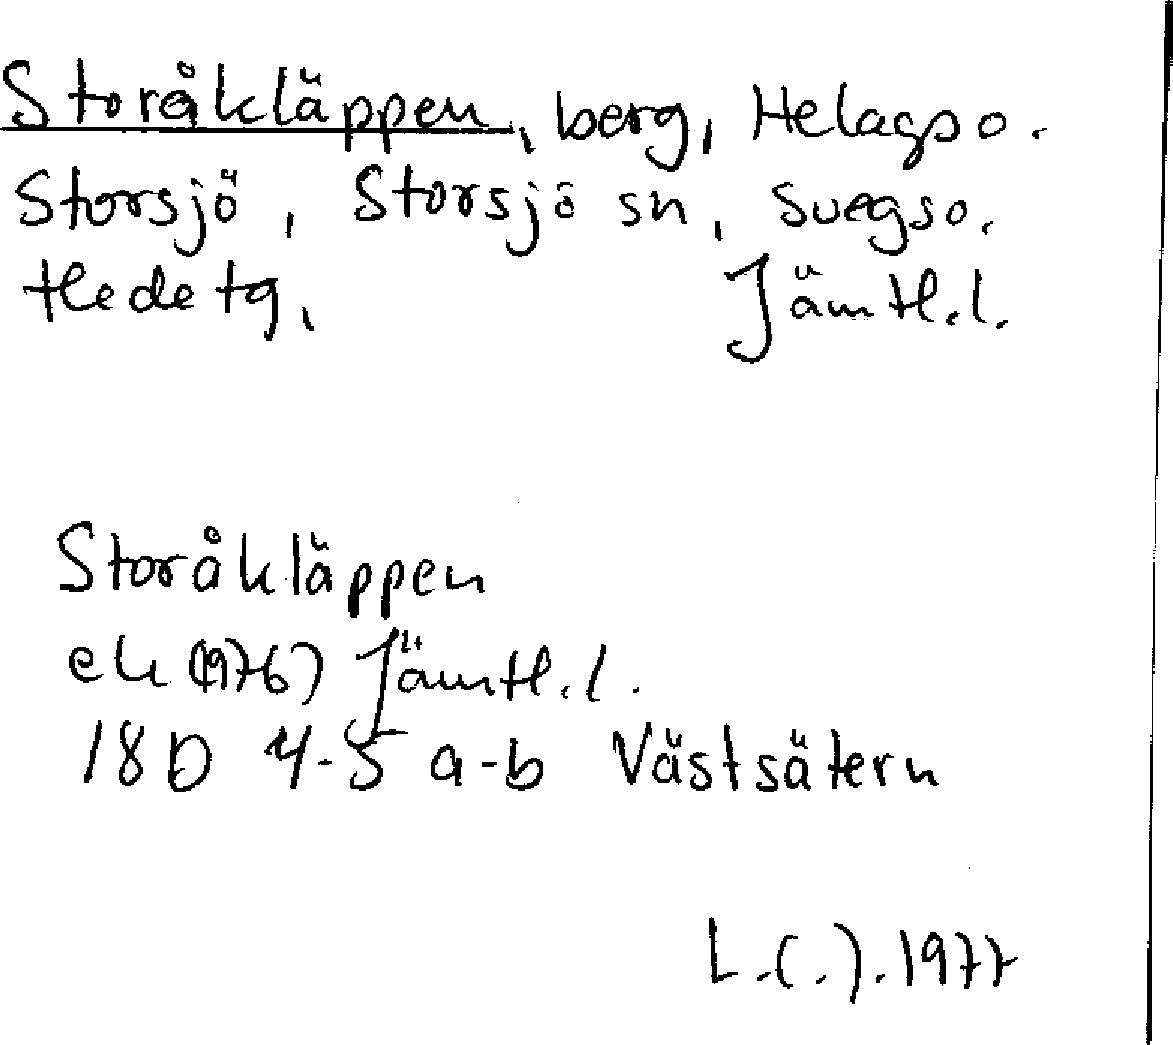 Storåkläppen, berg, Helagso.
Storsjö, Storsjö sn, Svegso.
Hede tg, Jämtl.l.
Storåkläppen
ek (1976) Jämtl.l.
18D 4-5 a-b Västsätern
L.(.).1977